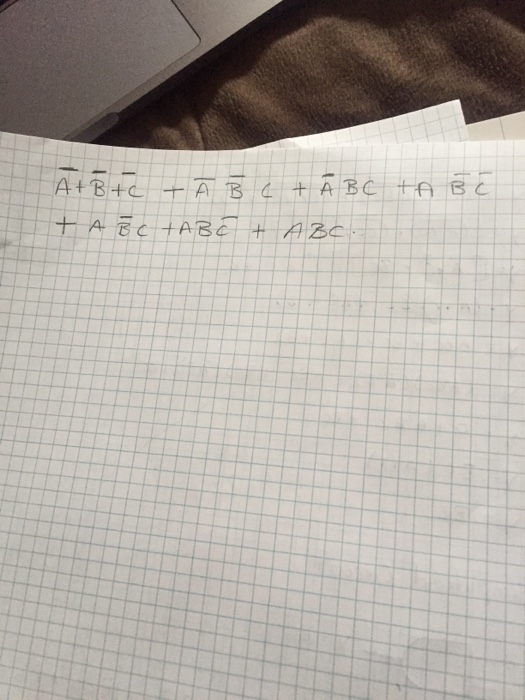 A̅+B̅+C̅ + A̅ B̅ C + A̅ BC + A B̅ C̅
+ A B̅ C + ABC̅ + ABC.